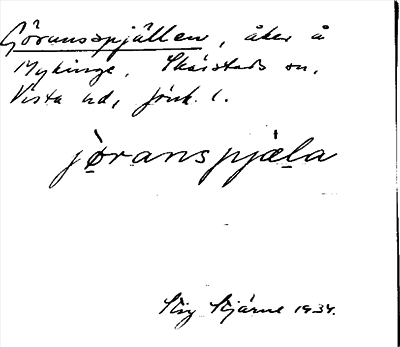 Göransspjällen, åker å
Mykinge, Skärstads sn,
Vista hd, Jönk. l.
jöranspjäla
Stig Stjärne 1934.